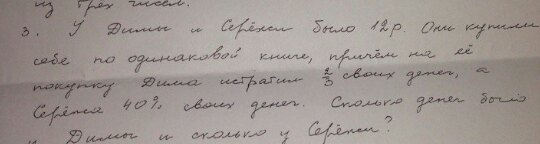 из трех чисел.
3. У Димы и Серёжи было 12р. Они купили
себе по одинаковой книге, причём на её
покупку Дима истратил 2/3 своих денег, а
Серёжа 40% своих денег. Сколько денег было
у Димы и сколько у Серёжи?